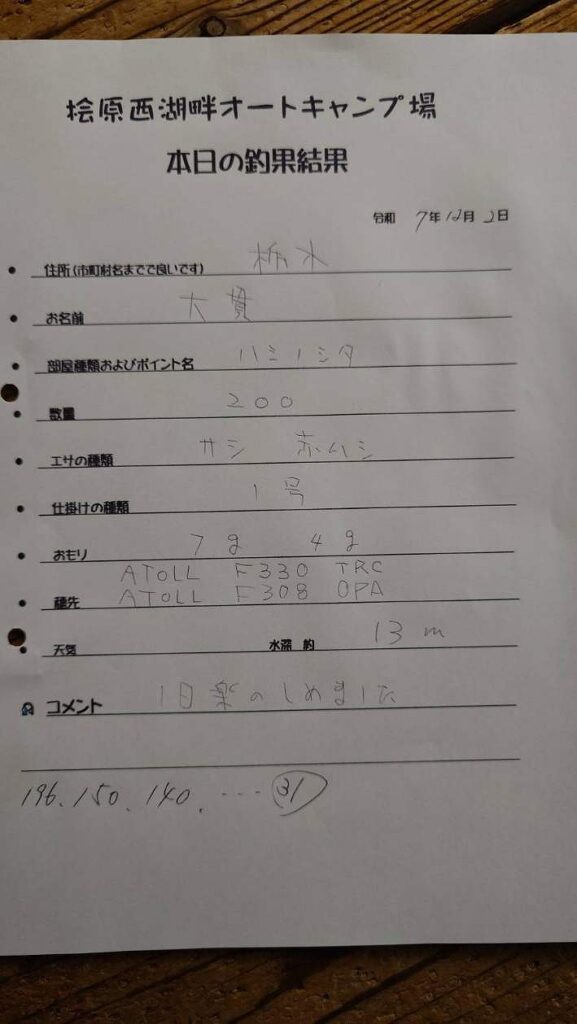 桧原西湖畔オートキャンプ場
本日の釣果結果
令和 7年12月2日
住所(市町村名まで良いです) 栃木
お名前 大貫
部屋種類およびポイント名 ハミノシタ
数量 200
エサの種類 サシ 赤ムシ
仕掛けの種類 1号
おもり 7g 4g
ATOLL F330 TRC
穂先 ATOLL F308 OPA
天気 水深 約 13m
コメント 1日楽のしめました
196.150.140.…31